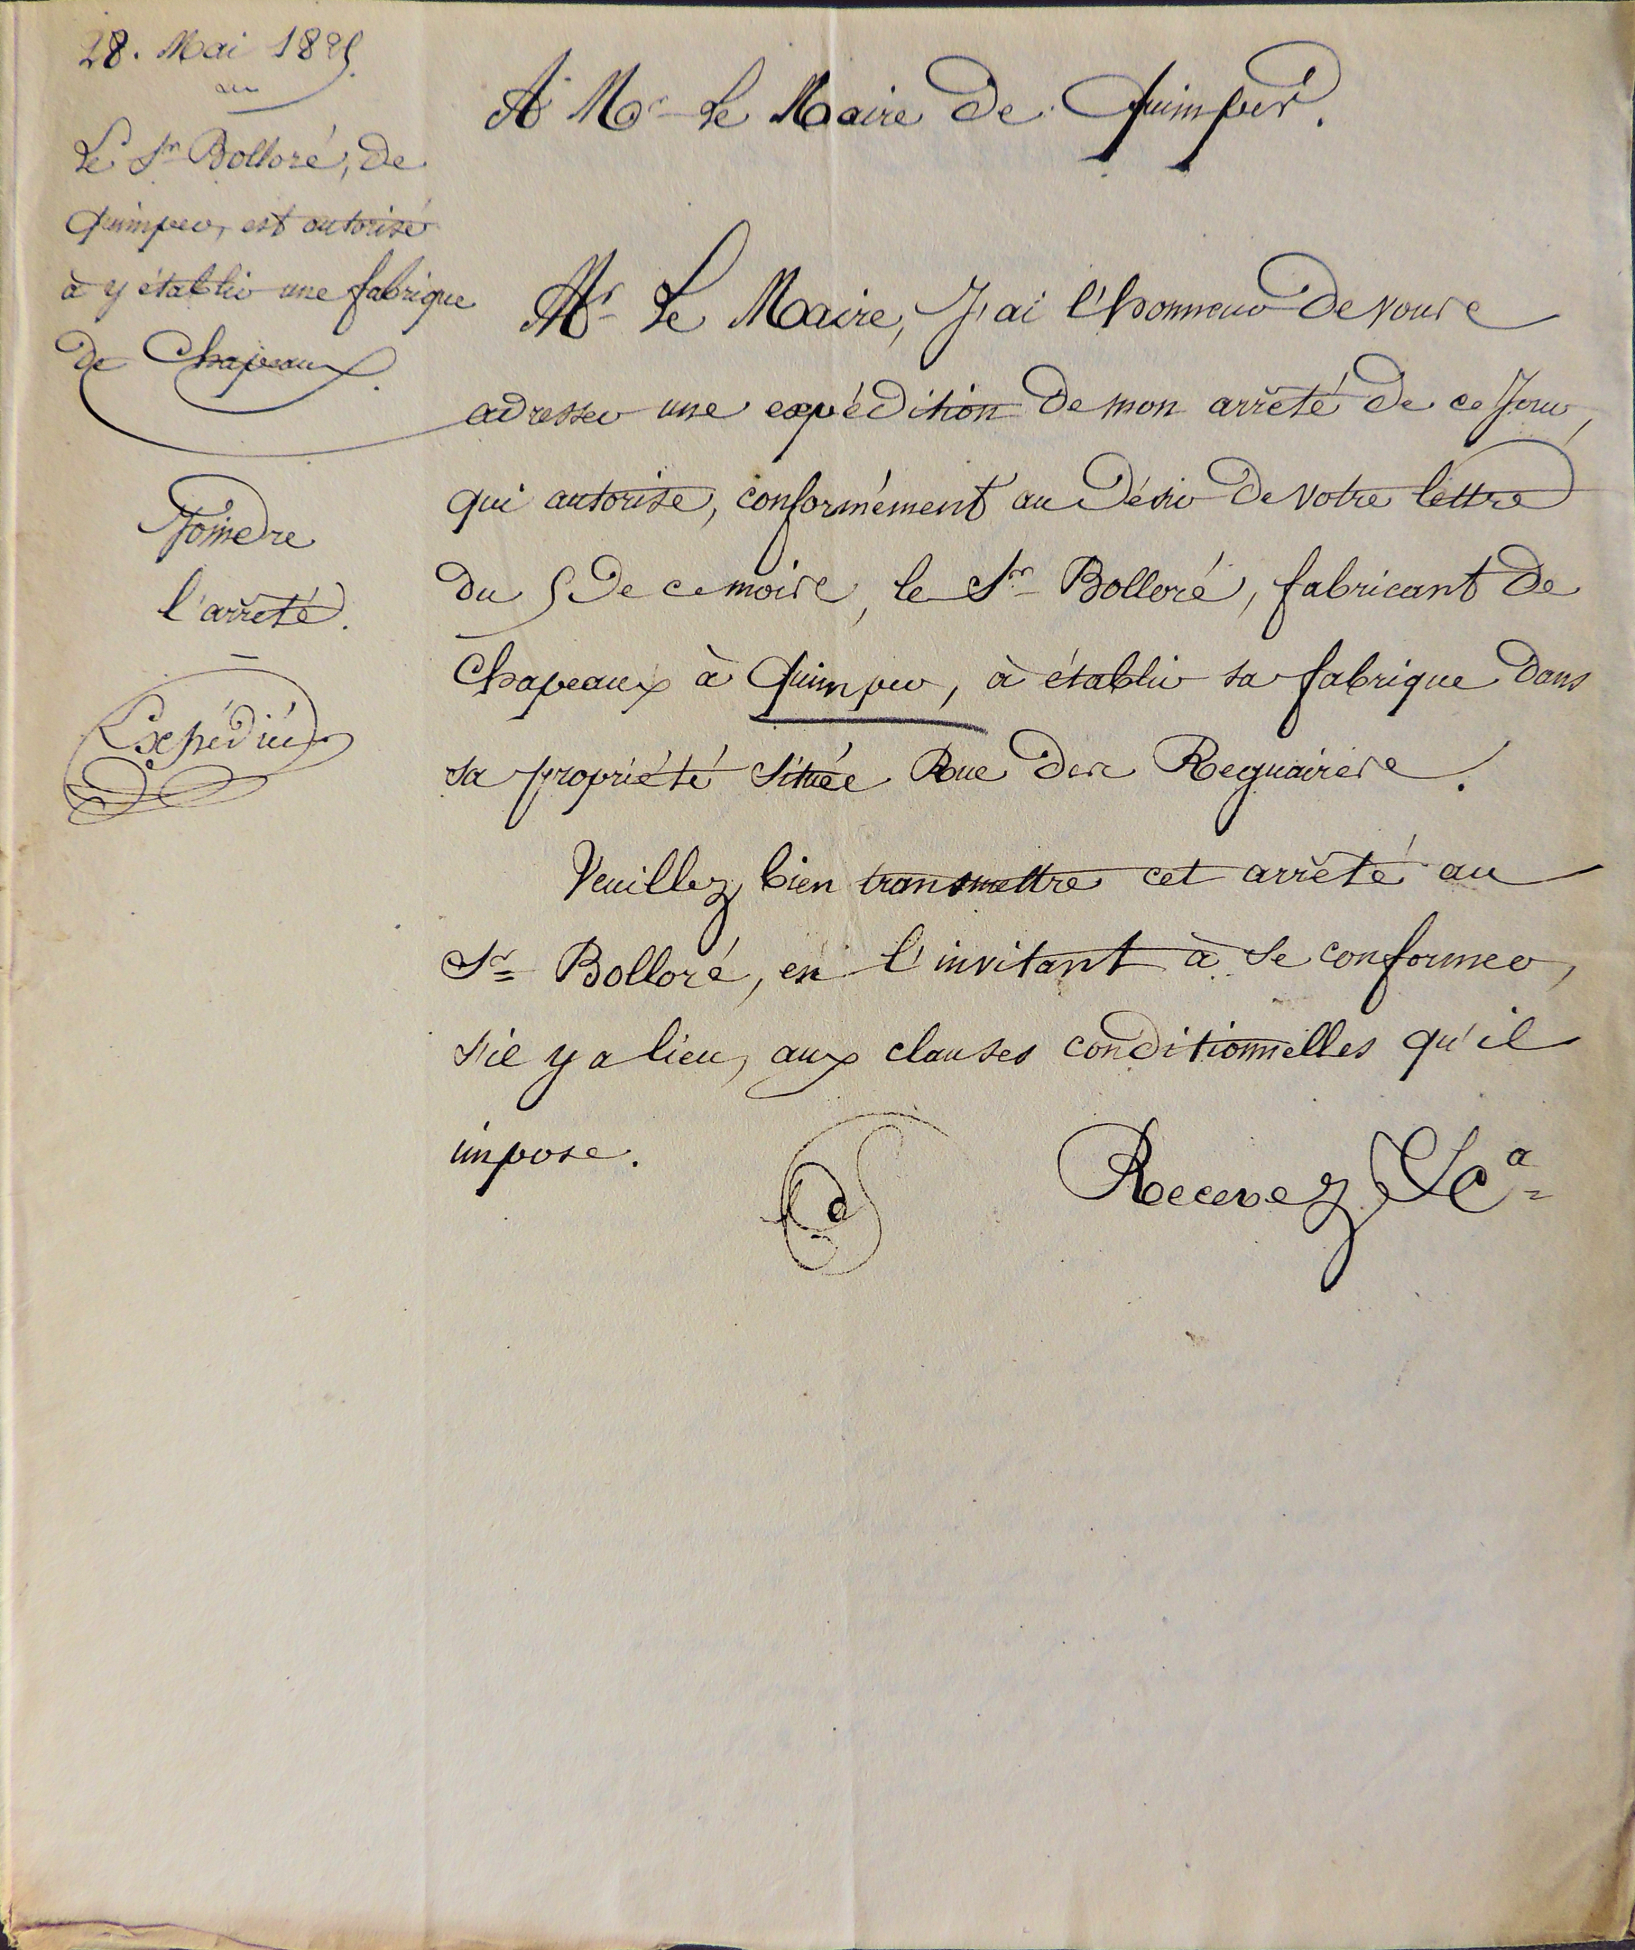 28. Mai 1825.
Le Sr Bolloré, de
Quimper, est autorisé
à y établir une fabrique
de Chapeaux.
Joindre
l'arrêté.
Expédiée
A Mr Le Maire de Quimper.
Mr Le Maire, J'ai l'honneur de vous
adresser une expédition de mon arrêté de ce Jour,
qui autorise, conformément au désir de votre lettre
du 5 de ce mois, le Sr Bolloré, fabricant de
Chapeaux à Quimper, à établir sa fabrique dans
sa propriété située Rue des Reguaires.
Veuillez bien transmettre cet arrêté au
Sr Bolloré, en l'invitant à se conformer,
s'il y a lieu, aux clauses conditionnelles qu'il
impose.
Recevez &a